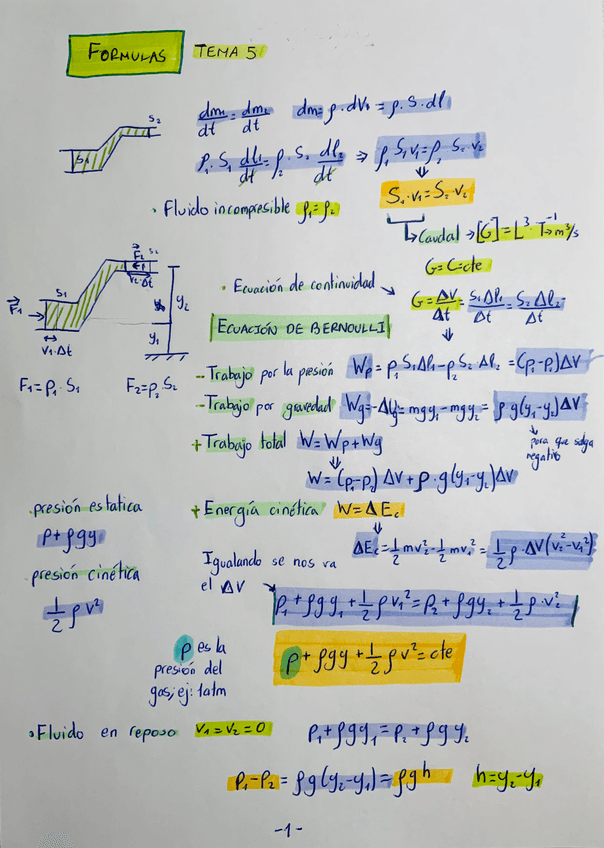 FORMULAS TEMA 5
dm₁/dt = dm₂/dt dm = ρ · dV = ρ · S · dl
S₂
S₁
ρ₁ · S₁ dl₁/dt = ρ₂ · S₂ dl₂/dt ⇒ ρ₁ S₁ v₁ = ρ₂ S₂ v₂
S₁ · v₁ = S₂ · v₂
· Fluido incompresible ρ₁ = ρ₂
Caudal → [G] = L³ · T⁻¹ → m³/s
G = C = cte
F₂ S₂
v₂ · Δt
y₂
· Ecuación de continuidad
G = ΔV/Δt = S₁ Δl₁/Δt = S₂ Δl₂/Δt
F₁ S₁
y₁
v₁ · Δt
ECUACIÓN DE BERNOULLI
F₁ = p₁ · S₁ F₂ = p₂ S₂
- Trabajo por la presión Wp = p₁ S₁ Δl₁ - p₂ S₂ Δl₂ = (p₁ - p₂) ΔV
- Trabajo por gravedad Wg = -ΔUg = mgy₁ - mgy₂ = ρ g (y₁ - y₂) ΔV
para que salga
negativo
+ Trabajo total W = Wp + Wg
W = (p₁ - p₂) ΔV + ρ · g (y₁ - y₂) ΔV
· presión estatica
p + ρgy
+ Energía cinética W = ΔEc
ΔEc = 1/2 mv₂² - 1/2 mv₁² = 1/2 ρ · ΔV (v₂² - v₁²)
presión cinética
1/2 ρ v²
Igualando se nos va
el ΔV
p₁ + ρgy₁ + 1/2 ρ v₁² = p₂ + ρgy₂ + 1/2 ρ · v₂²
p es la
presión del
gas, ej: 1atm
p + ρgy + 1/2 ρ v² = cte
· Fluido en reposo v₁ = v₂ = 0 p₁ + ρgy₁ = p₂ + ρgy₂
p₁ - p₂ = ρg (y₂ - y₁) = ρgh h = y₂ - y₁
-1-